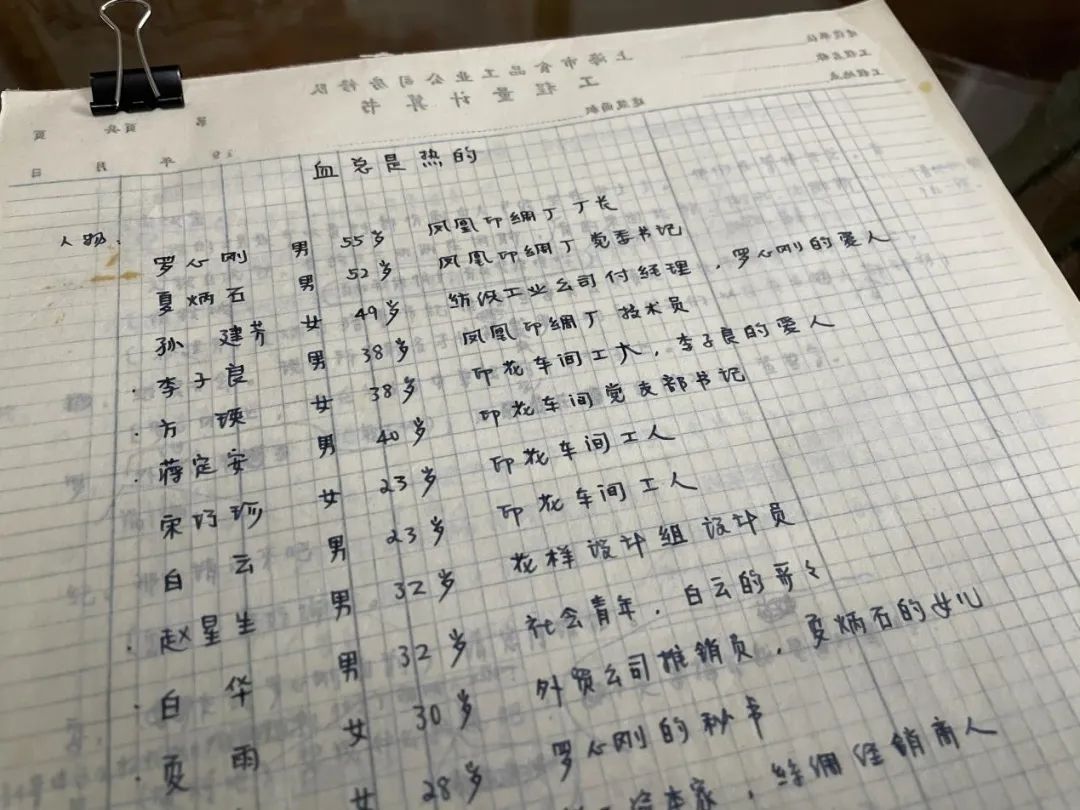 上海市食品工业公司房修队
工程量计算书
建设单位
工程名称
工程地点
建筑面积
第 页共 页
19 年 月 日
血总是热的
人物：
罗心刚 男 55岁 凤凰印绸厂厂长
夏炳石 男 52岁 凤凰印绸厂党委书记
孙建芳 女 49岁 纺织工业公司付经理，罗心刚的爱人
·李子良 男 38岁 凤凰印绸厂技术员
·方瑛 女 38岁 印花车间工，李子良的爱人
·蒋定安 男 40岁 印花车间党支部书记
宋巧珍 女 23岁 印花车间工人
白云 男 23岁 印花车间工人
·赵星生 男 32岁 花样设计组设计员
·白华 男 32岁 社会青年，白云的哥々
·夏雨 女 30岁 外贸公司推销员，夏炳石的女儿
女 28岁 罗心刚的秘书
资本家，丝绸经销商人